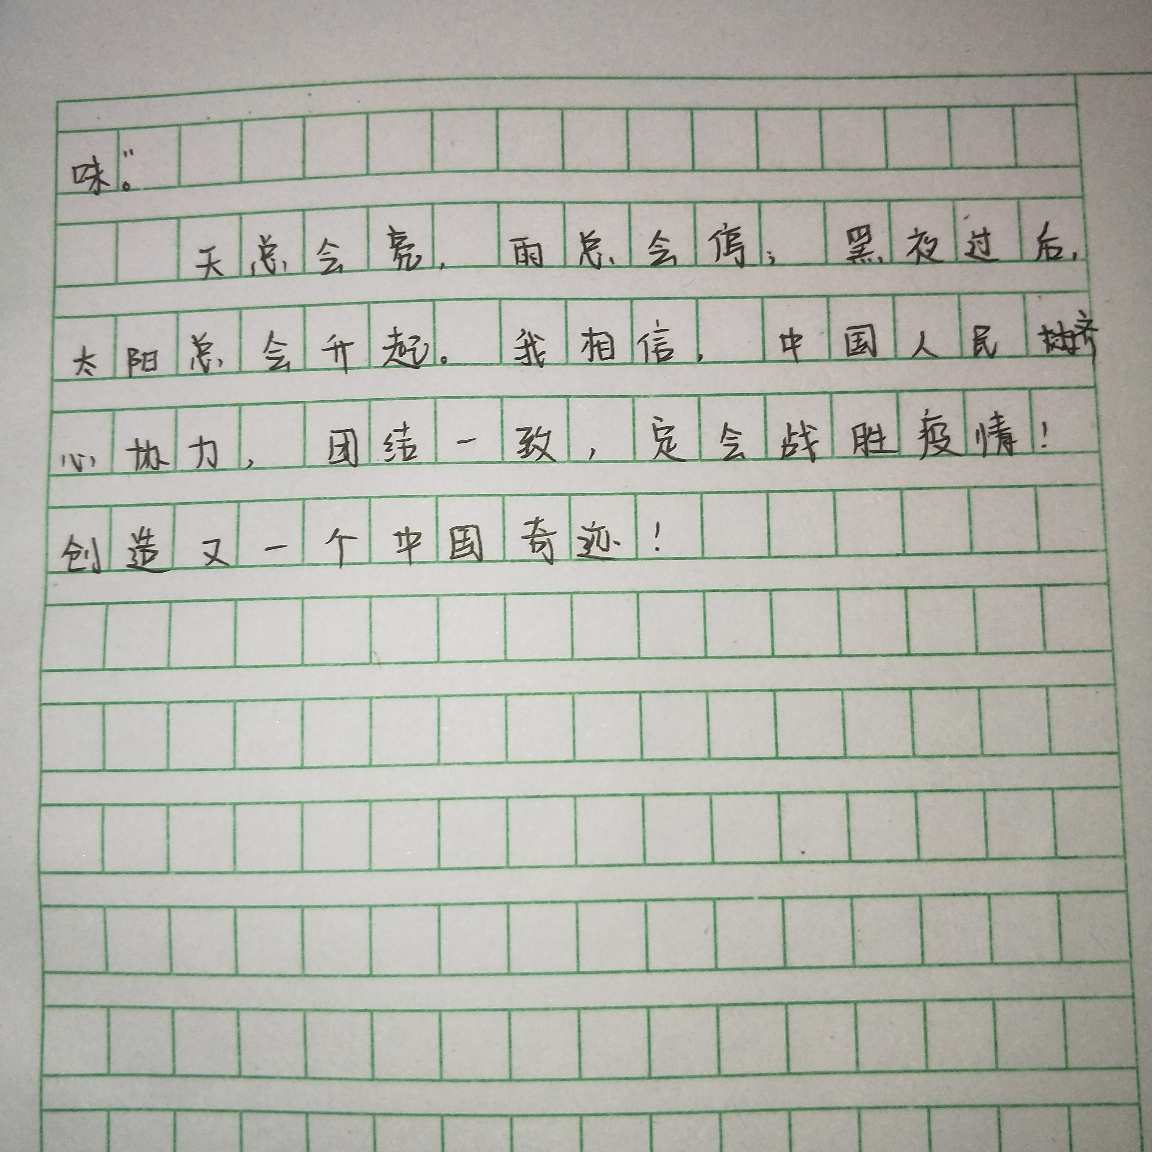 味。”
天总会亮，雨总会停；黑夜过后，
太阳总会升起。我相信，中国人民齐
心协力，团结一致，定会战胜疫情！
创造又一个中国奇迹！